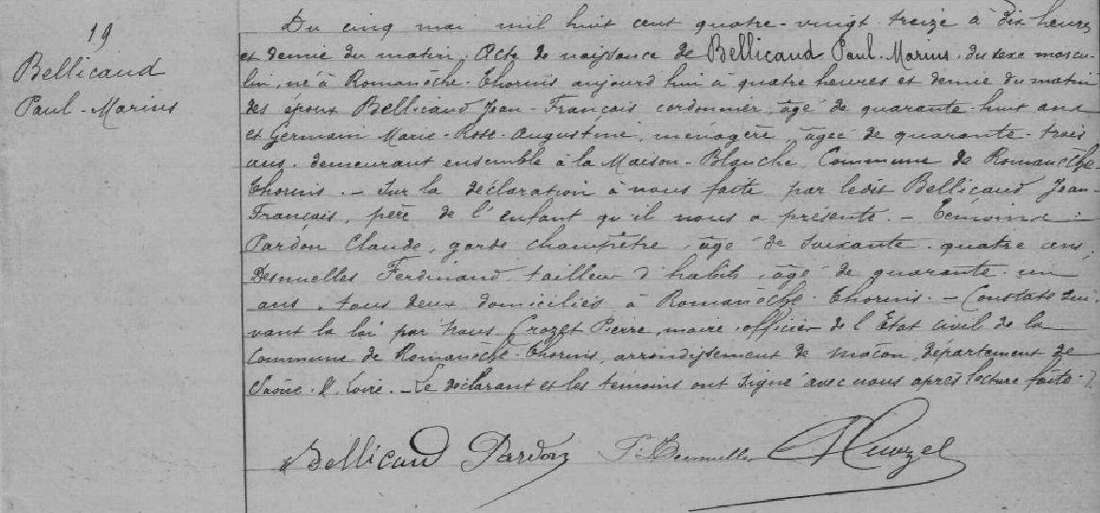 19
Bellicaud
Paul-Marius
Du cinq mai mil huit cent quatre-vingt treize à dix heures
et demie du matin. Acte de naissance de Bellicaud Paul-Marius, du sexe mascu-
lin, né à Romanèche-Thorins aujourd'hui à quatre heures et demie du matin
des époux Bellicaud Jean-François cordonnier, âgé de quarante-huit ans
et Germain Marie-Rose-Augustine, ménagère, âgée de quarante-trois
ans, demeurant ensemble à la Maison-Blanche, Commune de Romanèche-
Thorins. - Sur la déclaration à nous faite par ledit Bellicaud Jean-
François, père de l'enfant qu'il nous a présenté. - Témoins:
Pardon Claude, garde champêtre, âgé de soixante-quatre ans,
Desmuelles Ferdinand tailleur d'habits, âgé de quarante-un
ans, tous deux domiciliés à Romanèche-Thorins. - Constaté sui-
vant la loi par nous Crozet Pierre, maire officier de l'Etat civil de la
Commune de Romanèche-Thorins, arrondissement de Mâcon, département de
Saône-&-Loire. - Le déclarant et les témoins ont signé avec nous après lecture faite.
Bellicaud Pardon